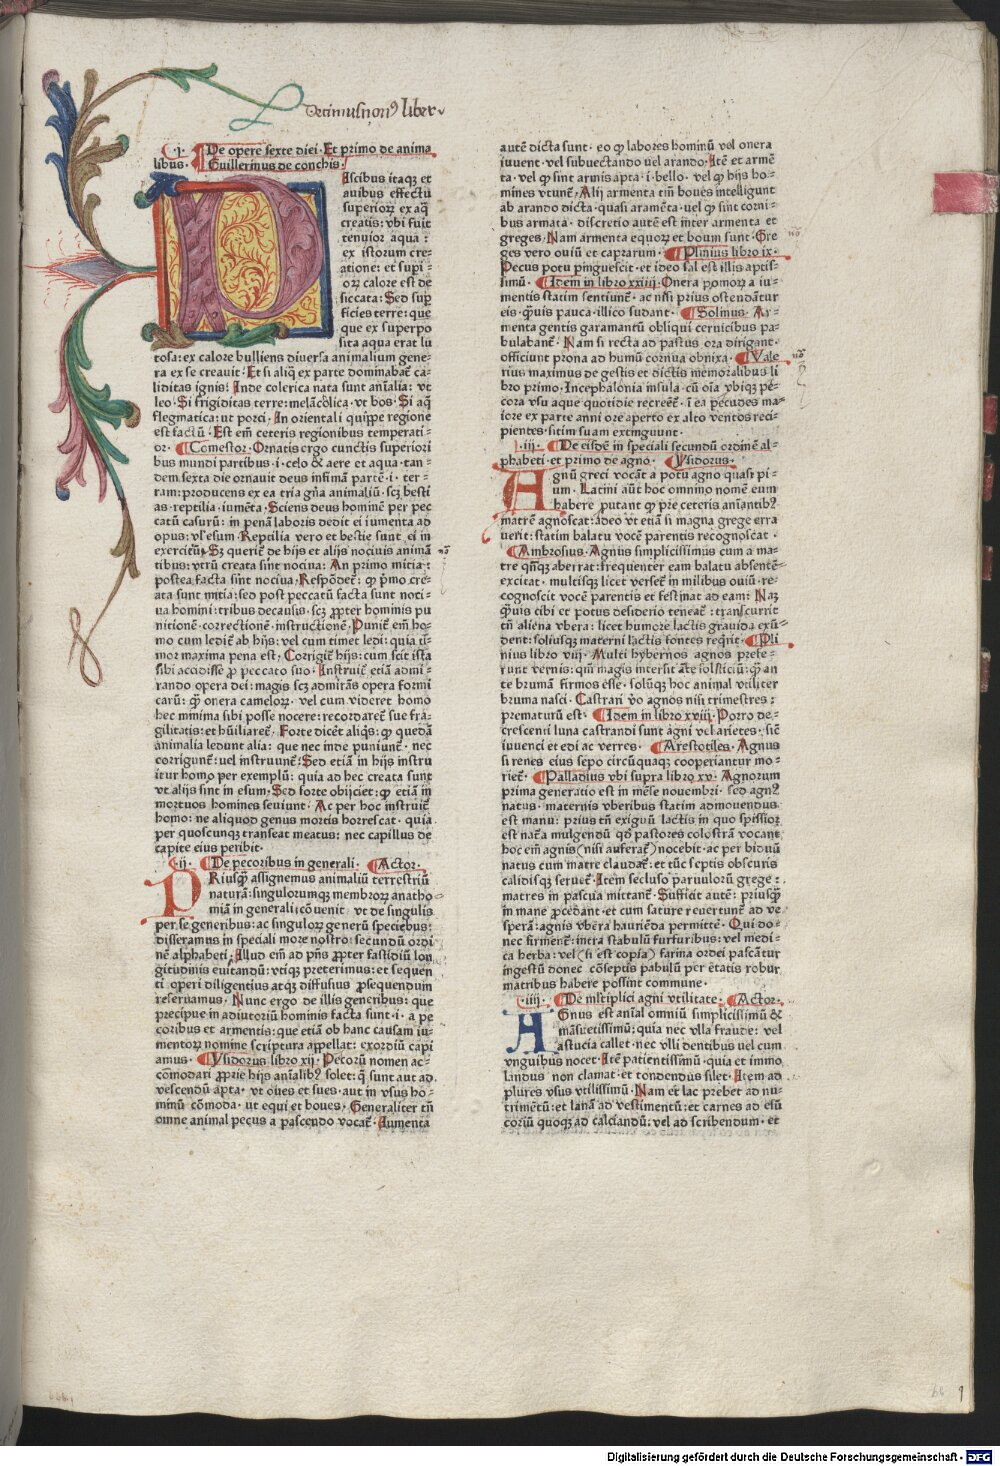 Decimusnonꝰ liber
.i. De opere sexte diei. Et primo de anima
libus. Guillerinus de conchis.
Iscibus itaqꝫ et
auibus effectu
superioꝝ ex aq̃
creatis: vbi fuit
tenuior aqua:
ex istorum cre-
atione: et supi-
oꝝ calore est de
siccata: Sed sup
ficies terre: que
que ex superpo
sita aqua erat lu
tosa: ex calore bulliens diuersa animalium gene-
ra ex se creauit. Et si aliq̃ ex parte dominabat̃ ca-
liditas ignis: Inde colerica nata sunt aĩalia: vt
leo. Si frigiditas terre: melãcolica. vt bos. Si aq̃
flegmatica: ut porci. In orientali quippe regione
est factũ. Est em̃ ceteris regionibus temperati-
or. Comestor. Ornatis ergo cunctis superiori
bus mundi partibus. i. celo & aere et aqua. tan-
dem sexta die ornauit deus infimã partẽ. i. ter-
ram: producens ex ea tria gñа animaliũ. scꝫ besti
as. reptilia. iumẽta. Sciens deus hominẽ per pec
catũ casurũ: in penã laboris dedit ei iumenta ad
opus: vl' esum. Reptilia vero et bestie sunt ei in
exercitiũ. Sꝫ querit̃ de hijs et alijs nociuis animã
tibus: vtrũ creata sint nociua: An primo mitia:
postea facta sint nociua. Respõdet̃: ꝙ pⁱmo cre-
ata sunt mitia: sed post peccatũ facta sunt noci-
ua homini: tribus decausis. scꝫ ꝓpter hominis pu
nitionẽ. correctionẽ. instructionẽ. Punit̃ em̃ ho-
mo cum ledit̃ ab hijs: vel cum timet ledi: quia ti-
mor maxima pena est. Corrigit̃ hijs: cum scit ista
sibi accidisse ꝓ peccato suo. Instruit̃ etiã admi-
rando opera dei: magis scꝫ admirãs opera formi
carũ: ꝙ onera cameloꝝ. vel cum videret homo
hec minima sibi posse nocere: recordaret̃ sue fra-
gilitatis: et hũiliaret̃. Forte dicet aliqⁱs: ꝙ quedã
animalia ledunt alia: que nec inde puniunt̃. nec
corrigunt̃: uel instruunt̃: Sed etiã in hijs instru
itur homo per exemplũ: quia ad hec creata sunt
vt alijs sint in esum. Sed forte obijciet: ꝙ etiã in
mortuos homines seuiunt. Ac per hoc instruit̃
homo: ne aliquod genus mortis horrescat. quia
per quoscunqꝫ transeat meatus: nec capillus de
capite eius peribit.
.ii. De pecoribus in generali. Actor.
PRiusqꝫ̃ assignemus animaliũ terrestriũ
naturã: singulorumqꝫ membroꝝ anatho-
miã in generali: cõuenit vt de singulis
per se generibus: ac singuloꝝ generũ speciebus:
disseramus in speciali more nostro: secundũ ordi
nẽ alphabeti. Illud em̃ ad pñs ꝓpter fastidiũ lon
gitudinis euitandũ: vtiqꝫ preterimus: et sequen
ti operi diligentius atqꝫ diffusius ꝓsequendum
reseruamus. Nunc ergo de illis generibus: que
precipue in adiutoriũ hominis facta sunt. i. a pe
coribus et armentis: que etiã ob hanc causam iu
mentoꝝ nomine scriptura appellat: exordiũ capi
amus. Ysidorus libro xij. Pecorũ nomen ac-
cõmodari ꝓprie hijs aĩalibꝰ solet: q̃ sunt aut ad
vescendũ apta. vt oues et sues. aut in vsus ho-
minũ cõmoda. ut equi et boues. Generaliter tñ
omne animal pecus a pascendo vocat̃. Aumenta
autẽ dicta sunt. eo ꝙ labores hominũ vel onera
iuuent. vel subuectando uel arando. Itẽ et armẽ
ta. vel ꝙ sint armis apta. i. bello. vel ꝙ hijs ho-
mines vtunt̃. Alij armenta tm̃ boues intelligunt
ab arando dicta. quasi aramẽta. vel ꝙ sint corni-
bus armata. discretio autẽ est inter armenta et
greges. Nam armenta equoꝝ et boum sunt. Gre
ges vero ouiũ et caprarum. Plinius libro ix.
Pecus potu pinguescit. et ideo sal est illis aptis-
simũ. Idem in libro xxiiij. Onera pomoꝝ a iu-
mentis statim sentiunt̃. ac nisi prius ostendãtur
eis. qͣuis pauca. illico sudant. Solinus. Ar-
menta gentis garamantũ obliqui ceruicibus pa-
bulabant̃. Nam si recta ad pastus ora dirigant.
officiunt prona ad humũ cornua obnixa. Vale
rius maximus de gestis et dictis memoralibus li
bro primo. Incephalonia insula. cũ oĩa vbiqꝫ pe-
cora vsu aque quotidie recreent̃. ĩ ea pecudes ma-
iore ex parte anni ore aperto ex alto ventos reci-
pientes. sitim suam extinguunt.
.iii. De eisdẽ in speciali secundũ ordinẽ al-
phabeti. et primo de agno. Ysidorus.
AGnũ greci vocãt a potu agno quasi pi-
um. Latini aũt hoc omnino nomẽ eum
habere putant ꝙ pre ceteris aniantibꝰ
matrẽ agnoscat: adeo vt etiã si magna grege erra
uerit: statim balatu vocẽ parentis recognoscat.
Ambrosius. Agnus simplicissimus cum a ma-
tre qñqꝫ aberrat: frequenter eam balatu absentẽ-
excitat. multisqꝫ licet verset̃ in milibus ouiũ. re-
cognoscit vocẽ parentis et festinat ad eam: Naꝫ
qͣuis cibi et potus desiderio teneat̃: transcurrit
tñ aliena vbera: licet humore lactis grauida exũ-
dent: soliusqꝫ materni lactis fontes reqⁱrit. Pli
nius libro viij. Multi hybernos agnos prefe-
runt vernis: qm̃ magis intersit ãte solsticiũ: ꝙ an
te brumã firmos esse. solũqꝫ hoc animal vtiliter
bruma nasci. Castrari vo agnos nisi trimestres:
prematurũ est. Idem in libro xviij. Porro de-
crescenti luna castrandi sunt agni vel arietes. sic̃
iuuenci et edi ac verres. Arestotiles. Agnus
si renes eius sepo circũquaqꝫ cooperiantur mo-
riet̃. Palladius vbi supra libro xv. Agnorum
prima generatio est in mẽse nouembri. sed agnꝰ
natus. maternis vberibus statim admouendus
est manu: prius tñ exiguũ lactis in quo spissior
est nat̃a mulgendũ qd̃ pastores colostrã vocant.
hoc em̃ agnis (nisi auferat̃) nocebit. ac per biduũ
natus cum matre claudat̃: et tũc septis obscuris
calidisqꝫ seruet̃. Item secluso paruulorũ grege:
matres in pascua mittant̃. Sufficit autẽ: priusqꝫ̃
in mane ꝓcedant. et cum sature reuertunt̃ ad ve
sperã: agnis vbera haurieda permittẽ. Qui do-
nec firment̃: intra stabulũ furfuribus: vel medi-
ca herba: vel (si est copia) farina ordei pascãtur
ingestũ donec cõseptis pabulũ per etatis robur
matribus habere possint commune.
.iiij. De mltiplici agni vtilitate. Actor.
AGnus est aĩal omniũ simplicissimũ &
mãsuetissimũ; quia nec vlla fraude: vel
astucia callet. nec vlli dentibus uel cum
vnguibus nocet. Itẽ patientissimũ. quia et immo
landus non clamat. et tondendus silet. Item ad
plures vsus vtilissimũ. Nam et lac prebet ad nu-
trimẽtũ: et lanã ad vestimentũ: et carnes ad esũ
coriũ quoqꝫ ad calciandũ: vel ad scribendum. et
66 1
Digitalisierung gefördert durch die Deutsche Forschungsgemeinschaft - DFG